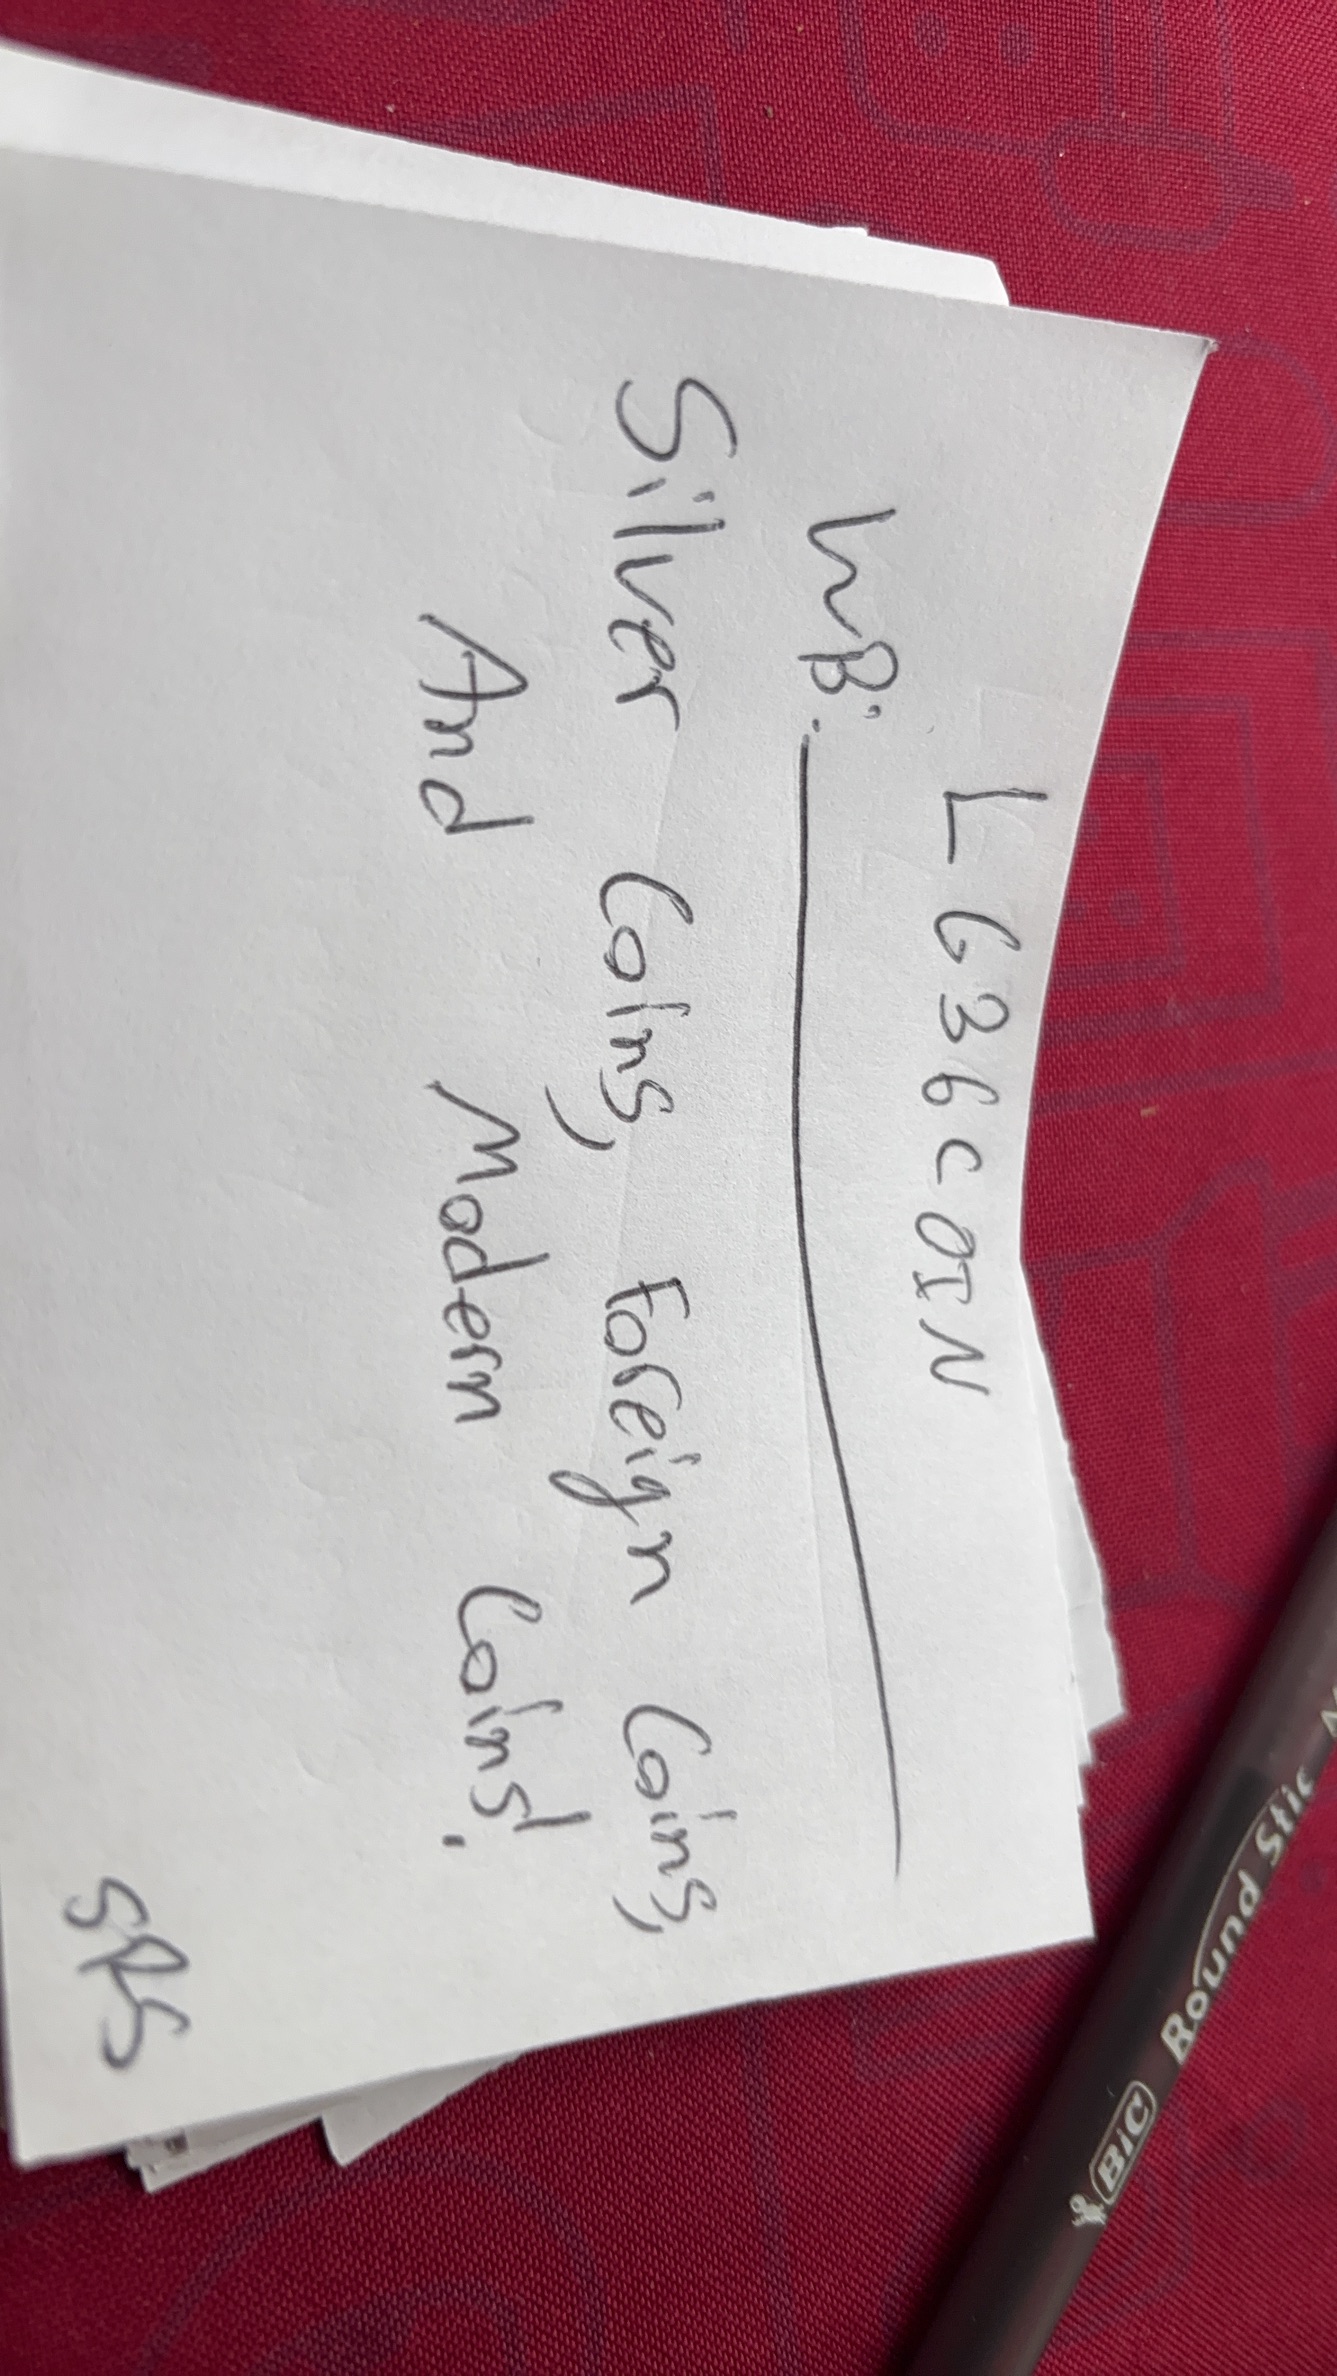 L636COIN
WB:
Silver Coins, Foreign Coins,
And Modern Coins!
SRS
BIC Round Stic